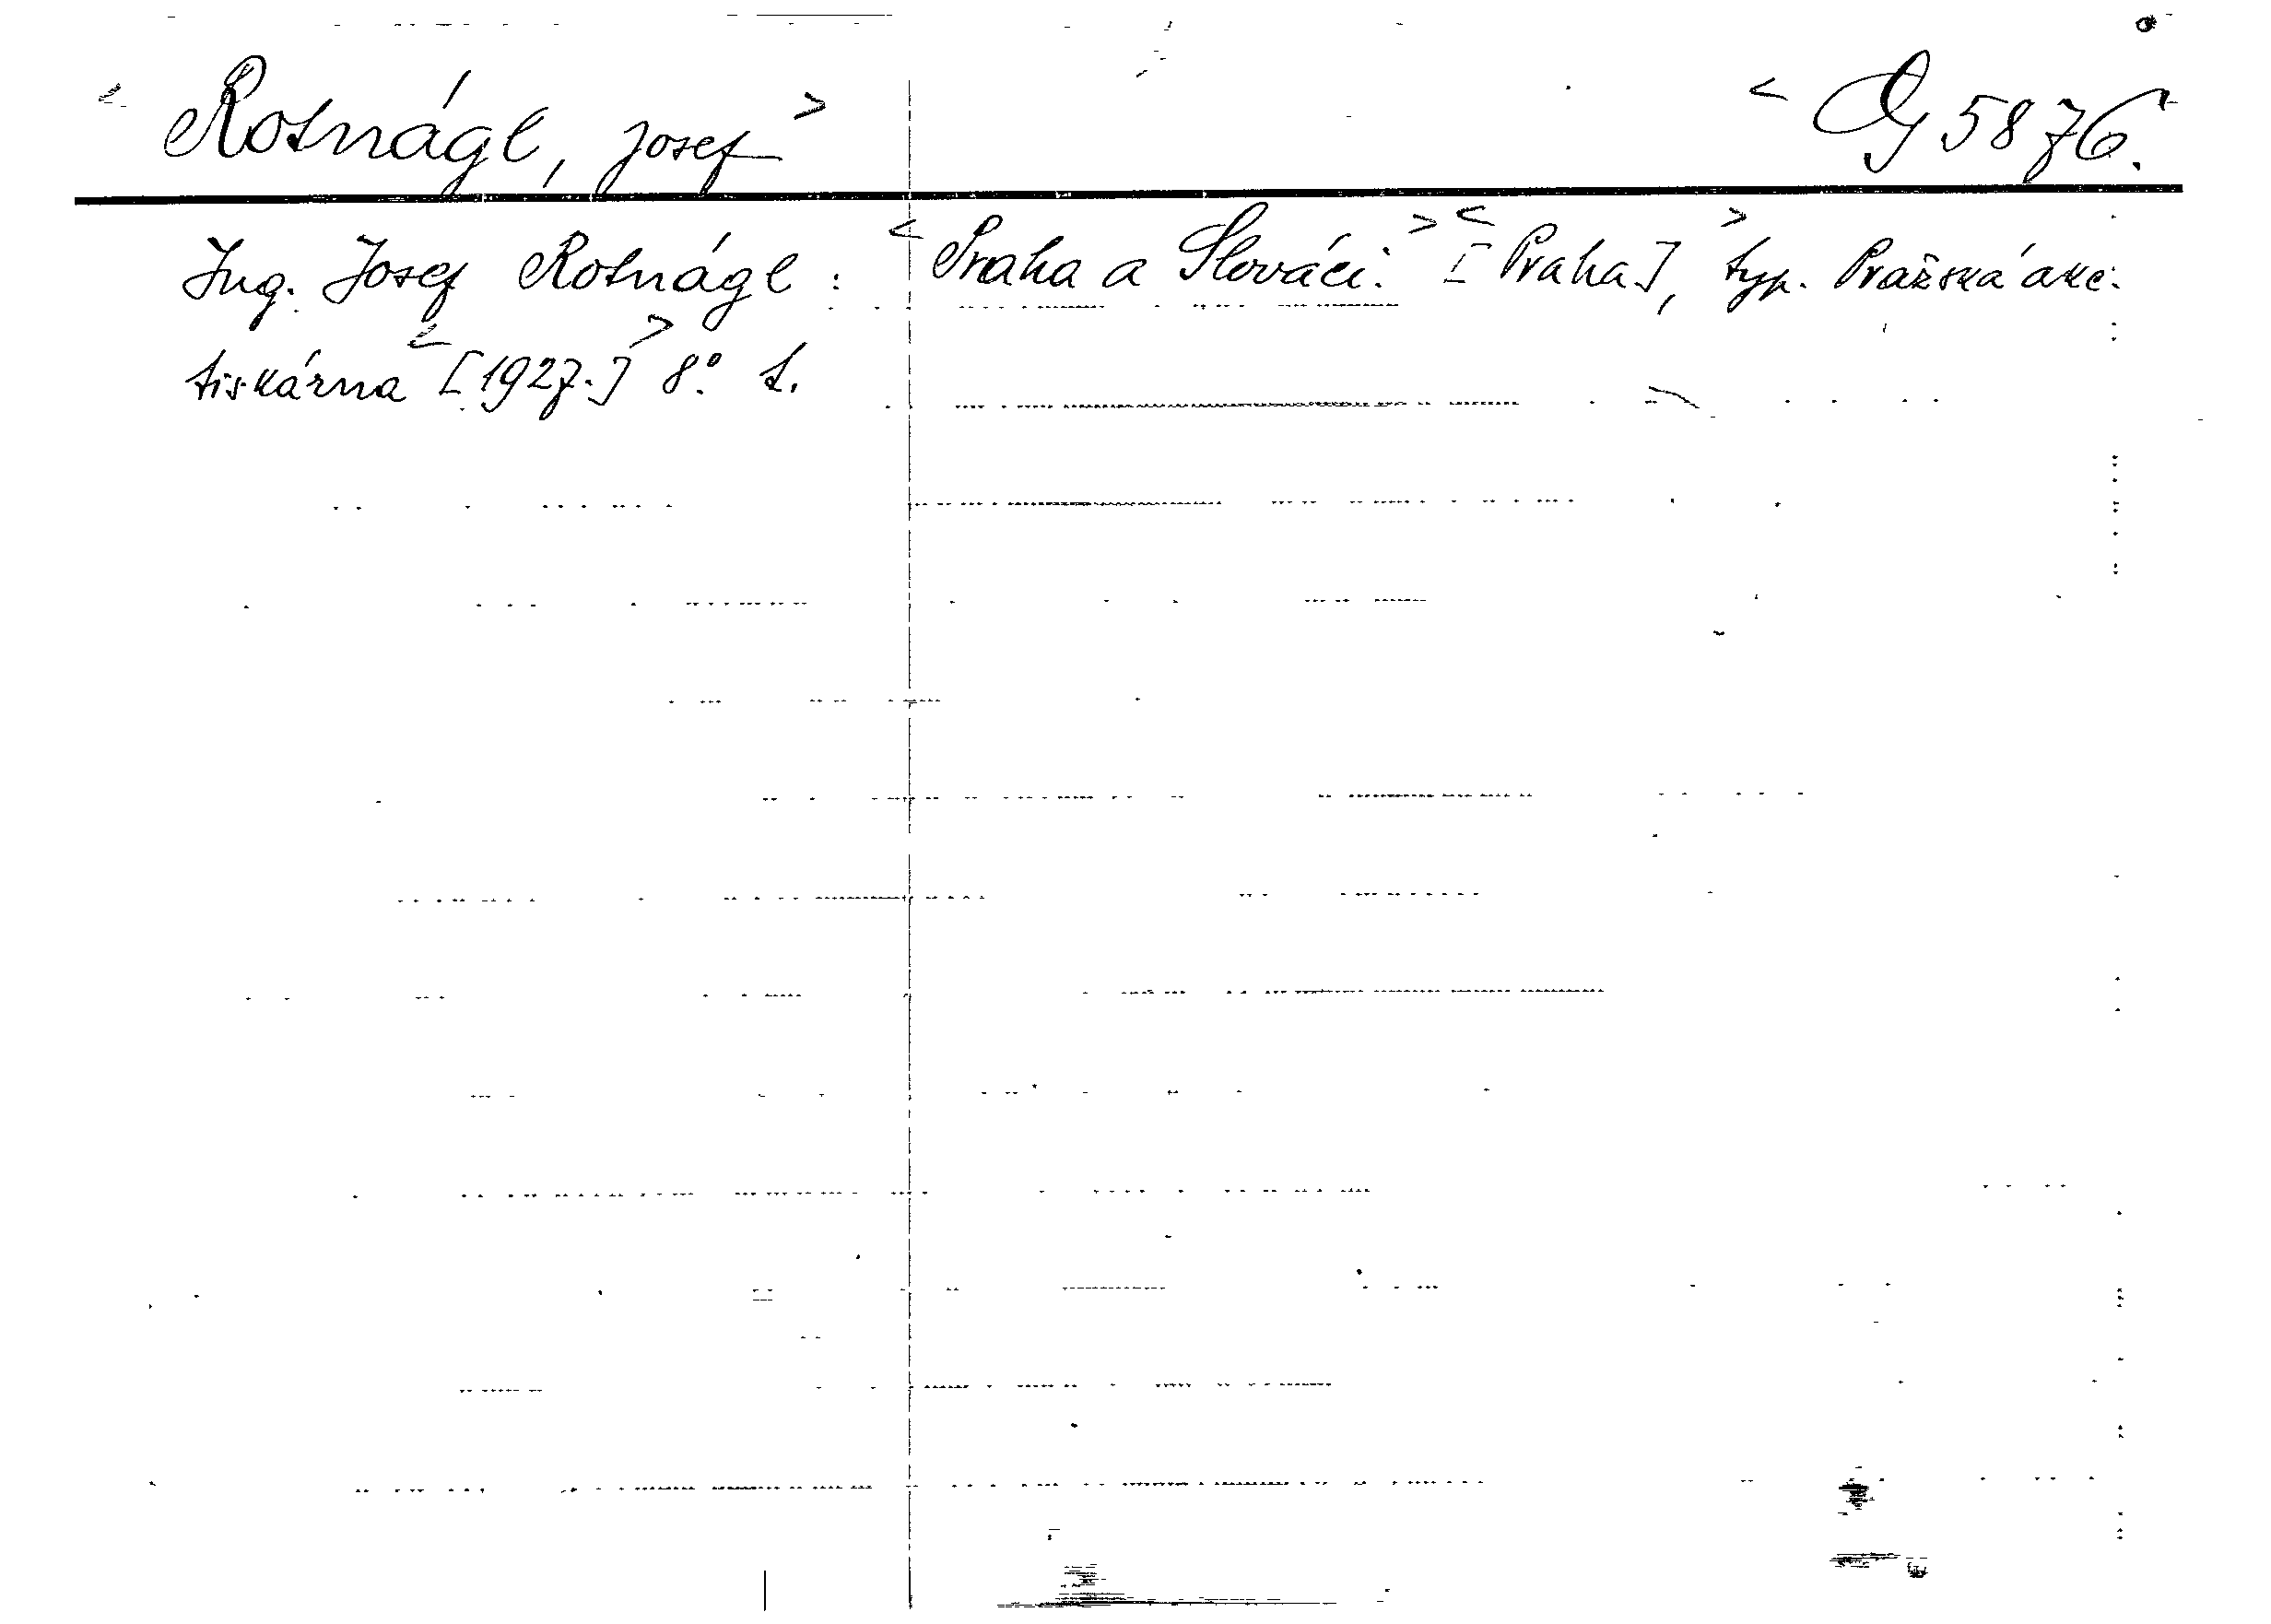 < Rotnágl, Josef > < Og 5876.
Ing. Josef Rotnágl : < Praha a Slováci. > < [Praha], > typ. Pražská akc.
tiskárna < [1927.] > 8°. t.